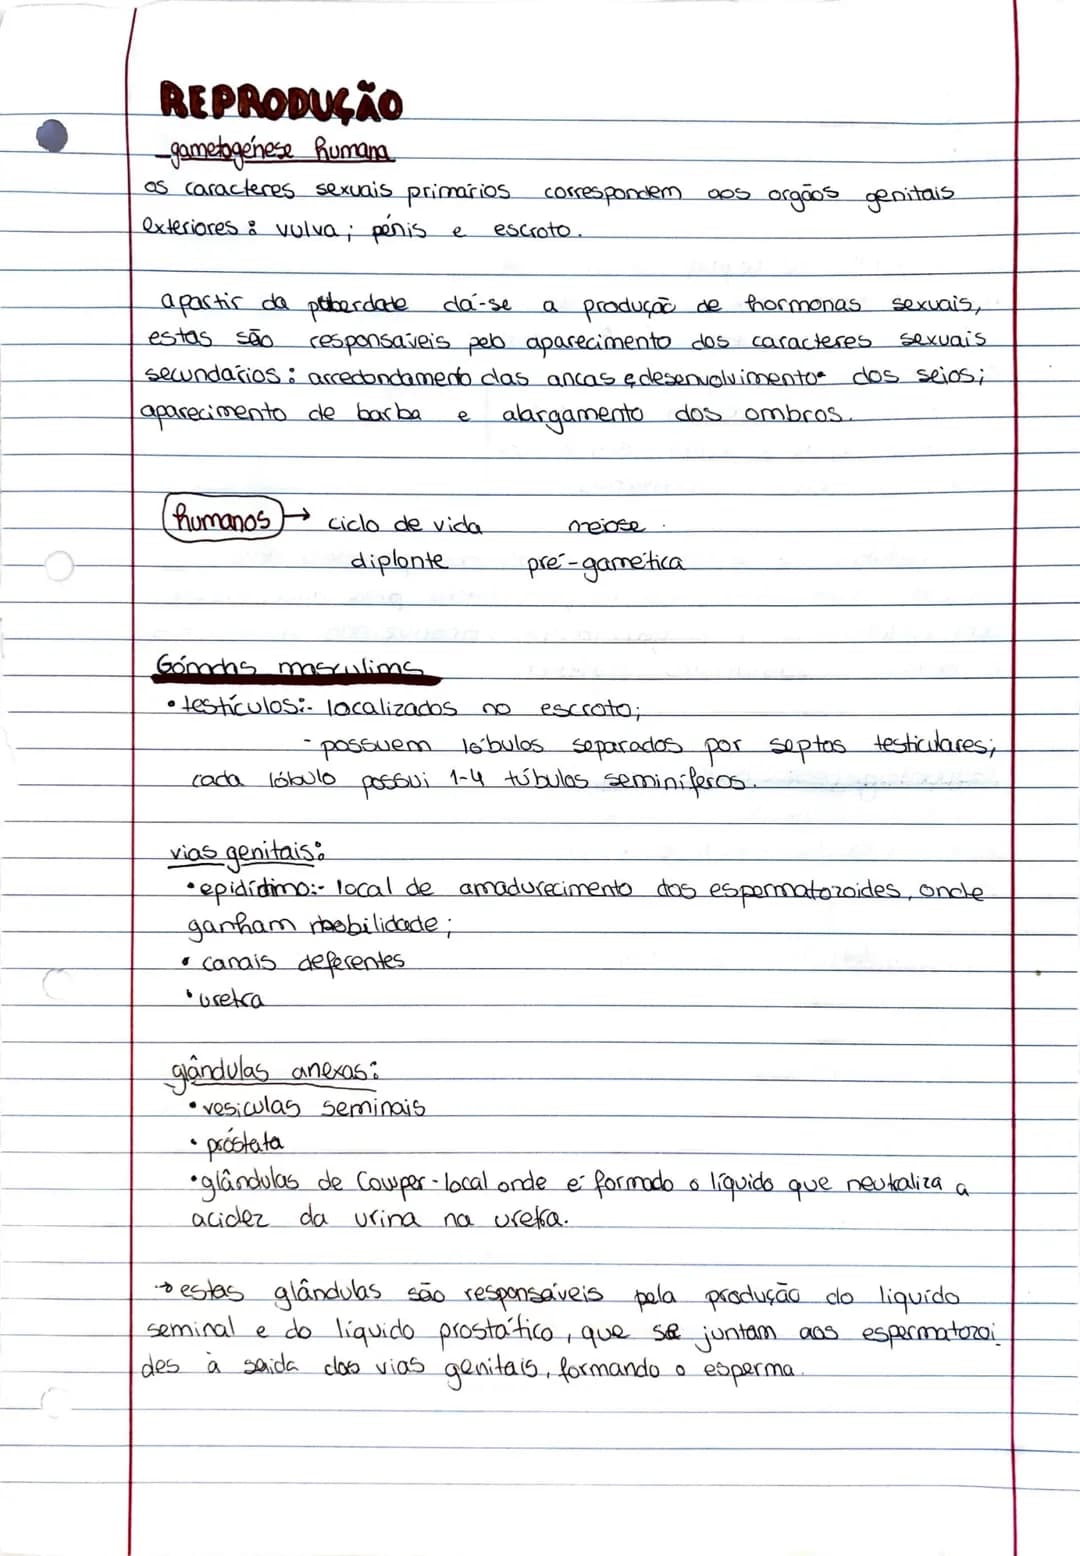 REPRODUÇÃO
- gametogénese humana
os caracteres sexuais primários correspondem aos orgãos genitais
exteriores: vulva; pénis e escroto.
a partir da puberdade dá-se a produção de hormonas sexuais,
estas são responsáveis pelo aparecimento dos caracteres sexuais
secundários: arredondamento das ancas e desenvolvimento dos seios;
aparecimento de barba e alargamento dos ombros.
humanos → ciclo de vida meiose
diplonte pré-gamética
Gónadas masculinas
• testículos:- localizados no escroto;
- possuem lóbulos separados por septos testiculares;
cada lóbulo possui 1-4 túbulos seminíferos.
vias genitais:
• epidídimo:- local de amadurecimento dos espermatozoides, onde
ganham mobilidade;
• canais deferentes
• uretra
glândulas anexas:
• vesiculas seminais
• próstata
• glândulas de Cowper - local onde é formado o líquido que neutraliza a
acidez da urina na uretra.
→ estas glândulas são responsáveis pela produção do liquido
seminal e do líquido prostático, que se juntam aos espermatozoi
des à saida das vias genitais, formando o esperma.